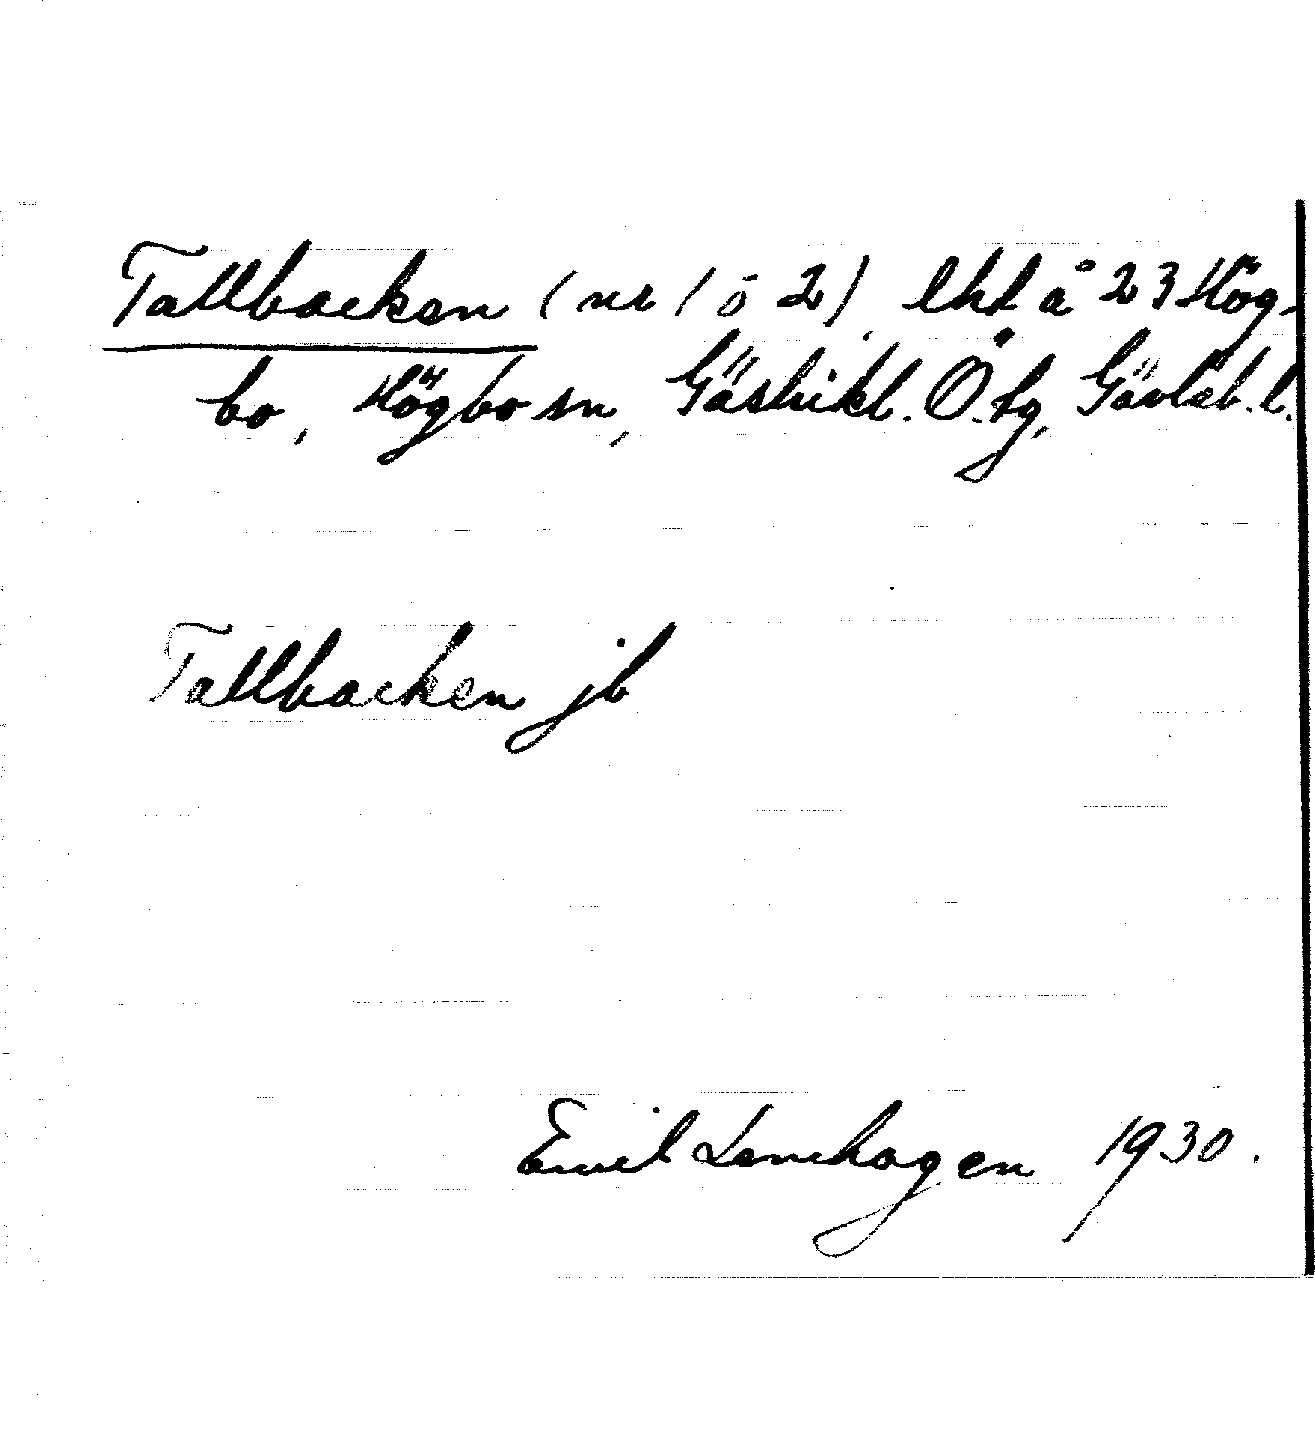 Tallbacken (nr 1 o 2) lht å 23 Hög-
bo, Högbo sn, Gästrikl. Ö. tg, Gävleb. l.
Tallbacken jb
Emil Lenhagen 1930.